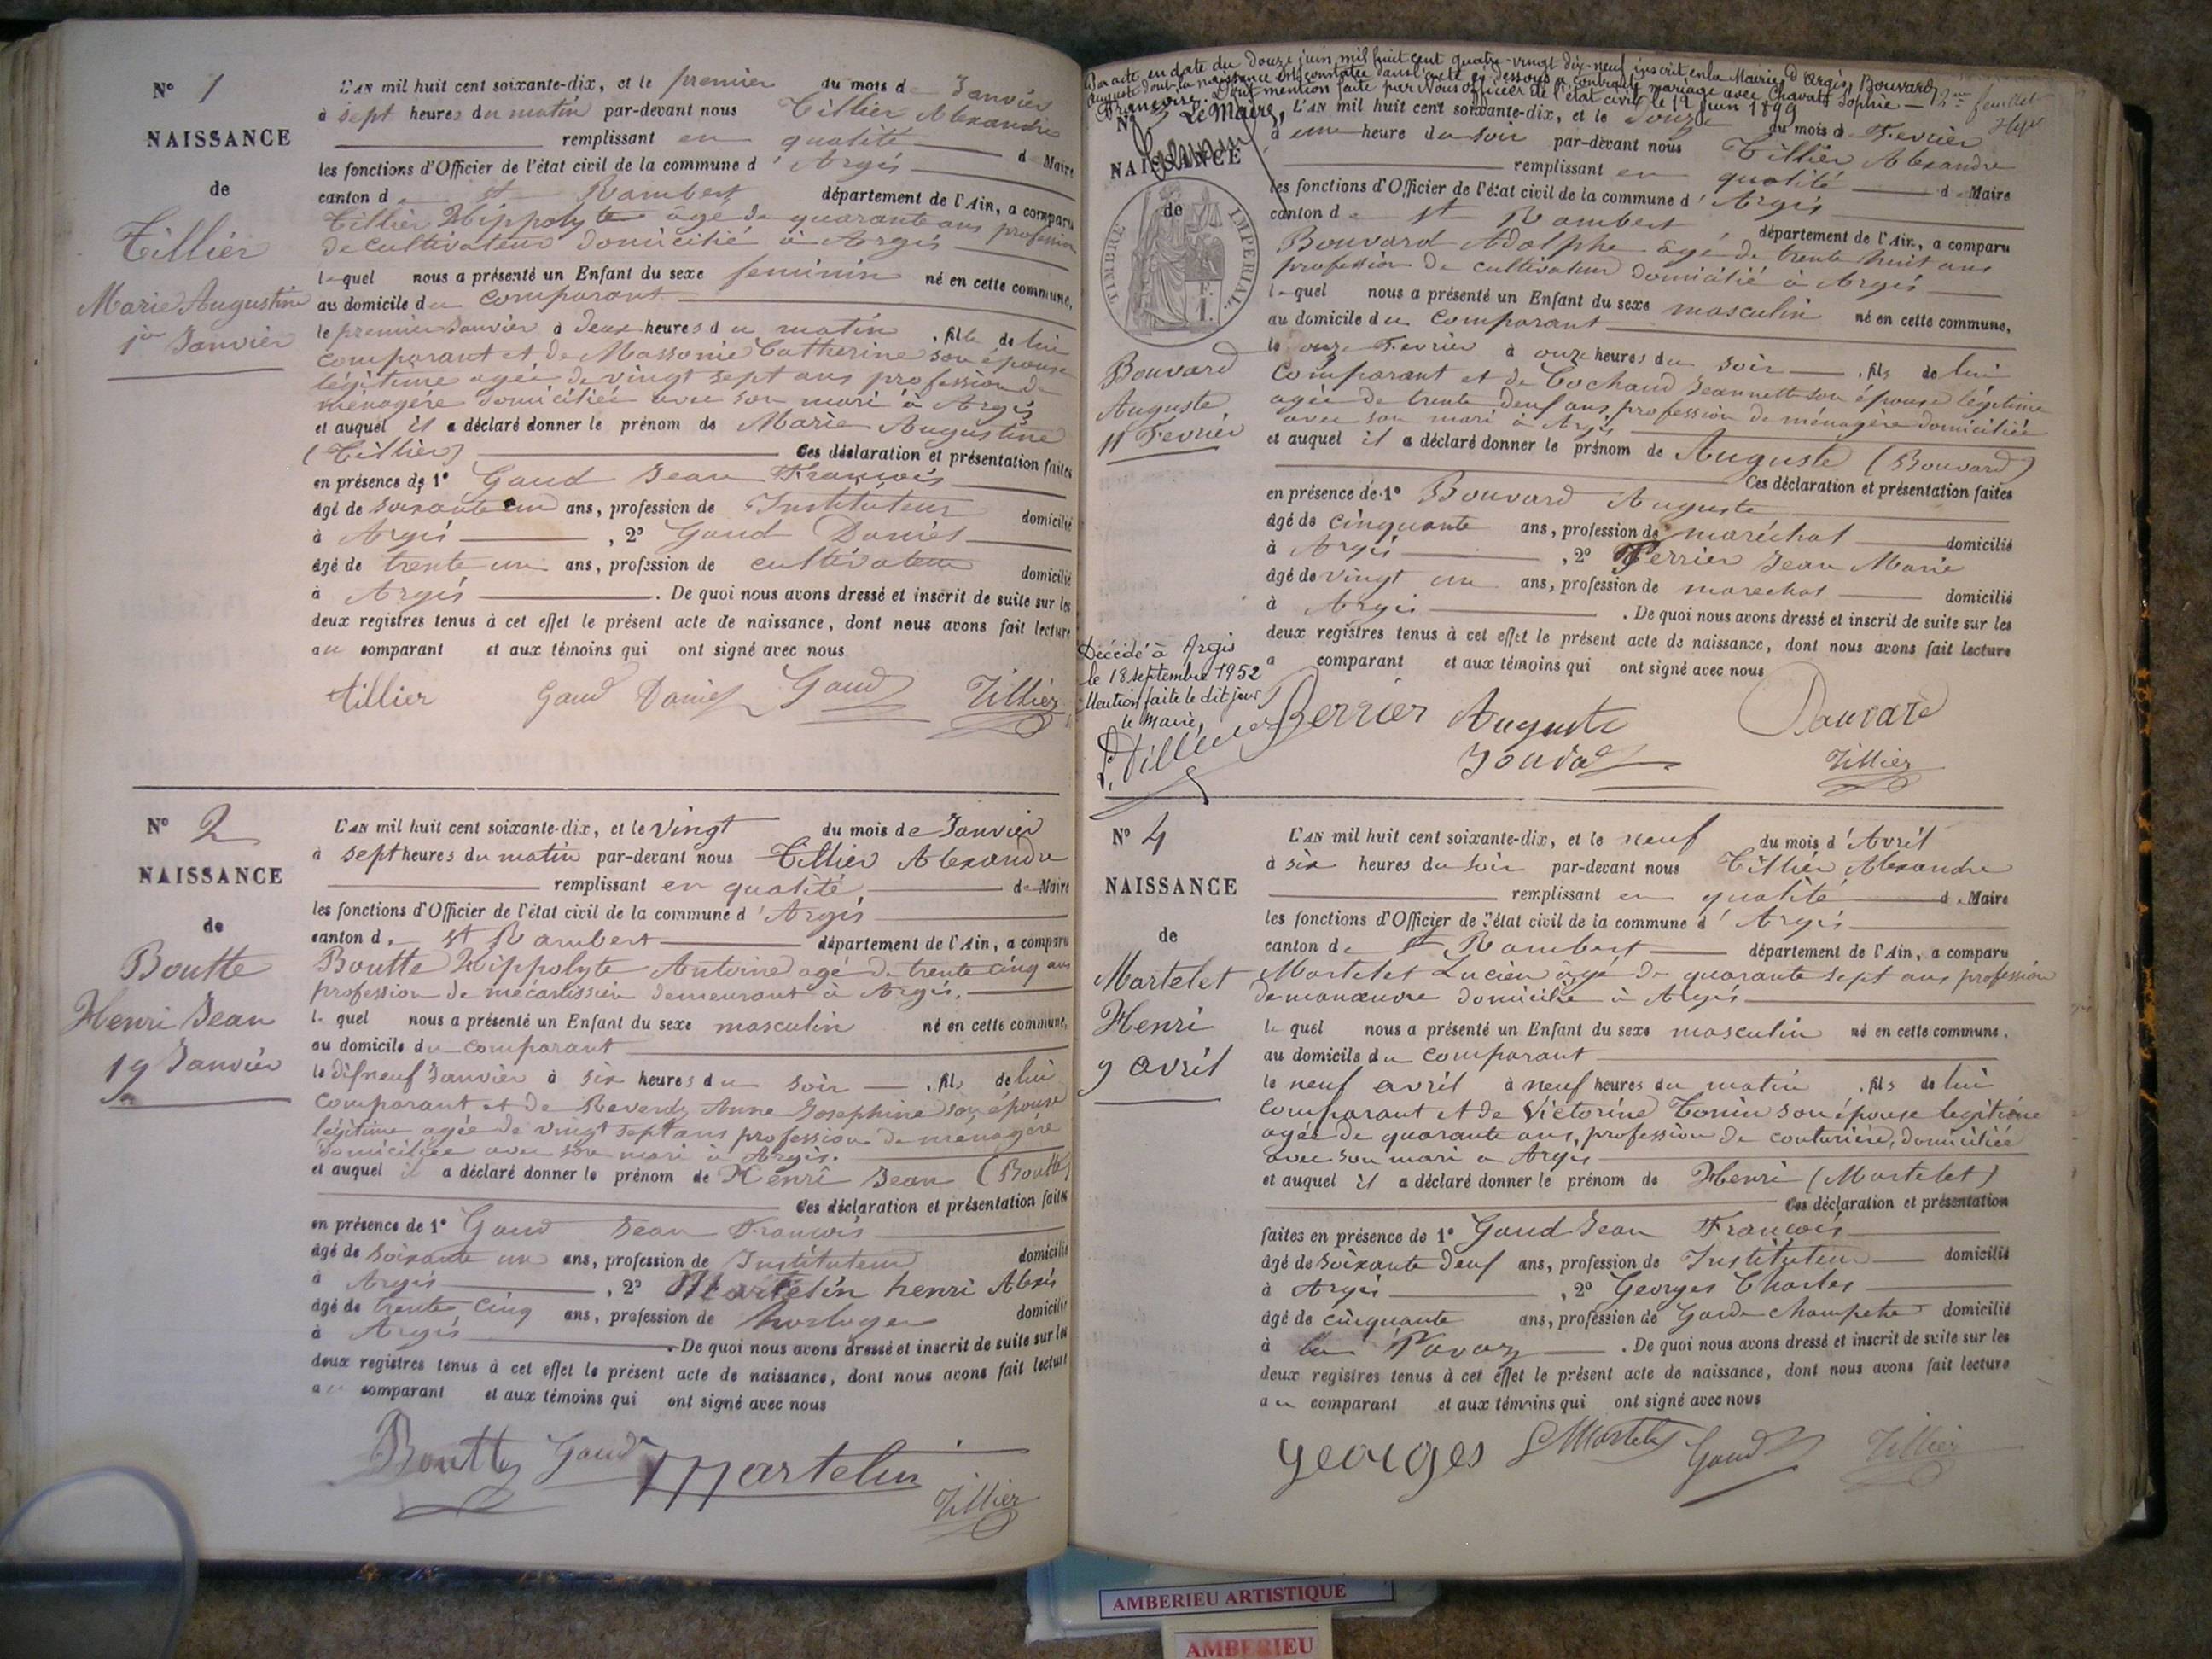 N° 1
NAISSANCE
de
Tillier
Marie Augustine
1er Janvier
L'AN mil huit cent soixante-dix, et le premier du mois de Janvier
à sept heures du matin par-devant nous Tillier Alexandre
remplissant en qualité de Maire
les fonctions d'Officier de l'état civil de la commune d'Argis
canton de St Rambert département de l'Ain, a comparu
Tillier Hippolyte âgé de quarante ans profession
de cultivateur domicilié à Argis
lequel nous a présenté un Enfant du sexe feminin né en cette commune,
au domicile du comparant
le premier Janvier à deux heures du matin, fille de lui
comparant et de Massonie Catherine son épouse
légitime agée de vingt sept ans profession de
ménagère domiciliée avec son mari à Argis
et auquel il a déclaré donner le prénom de Marie Augustine
(Tillier) Ces déclaration et présentation faites
en présence de 1° Gaud Jean François
âgé de soixante un ans, profession de Instituteur domicilié
à Argis, 2° Gaud Daniel
âgé de trente un ans, profession de cultivateur domicilié
à Argis. De quoi nous avons dressé et inscrit de suite sur les
deux registres tenus à cet effet le présent acte de naissance, dont nous avons fait lecture
au comparant et aux témoins qui ont signé avec nous
Tillier Gaud Daniel Gaud Tillier
N° 2
NAISSANCE
de
Boutte
Henri Jean
19 Janvier
L'AN mil huit cent soixante-dix, et le vingt du mois de Janvier
à sept heures du matin par-devant nous Tillier Alexandre
remplissant en qualité de Maire
les fonctions d'Officier de l'état civil de la commune d'Argis
canton de St Rambert département de l'Ain, a comparu
Boutte Hippolyte Antoine agé de trente cinq ans
profession de mécanissien demeurant à Argis.
lequel nous a présenté un Enfant du sexe masculin né en cette commune,
au domicile du comparant
le dixneuf Janvier à six heures du soir, fils de lui
comparant et de Reverdy Anne Josephine son épouse
légitime agée de vingt sept ans profession de ménagère
domiciliée avec son mari à Argis.
et auquel il a déclaré donner le prénom de Henri Jean (Boutte)
Ces déclaration et présentation faites
en présence de 1° Gaud Jean François
âgé de soixante un ans, profession de Instituteur domicilié
à Argis, 2° Martelin henri Alexis
âgé de trente cinq ans, profession de horloger domicilié
à Argis. De quoi nous avons dressé et inscrit de suite sur les
deux registres tenus à cet effet le présent acte de naissance, dont nous avons fait lecture
au comparant et aux témoins qui ont signé avec nous
Boutte Gaud Martelin
Tillier
Par acte en date du douze juin mil huit cent quatre-vingt dix-neuf inscrit en la Mairie d'Argis, Bouvard
Auguste dont la naissance est constatée dans l'acte ci-dessous a contracté mariage avec Chavat Sophie
Françoise. Dont mention faite par Nous officier de l'état civil le 12 Juin 1899
Le Maire,
2me feuillet
N°
NAISSANCE
de
TIMBRE IMPÉRIAL.
Bouvard
Auguste
11 Fevrier
L'AN mil huit cent soixante-dix, et le douze du mois de Fevrier
à une heure du soir par-devant nous Tillier Alexandre
remplissant en qualité de Maire
les fonctions d'Officier de l'état civil de la commune d'Argis
canton de St Rambert département de l'Ain, a comparu
Bouvard Adolphe âgé de trente huit ans
profession de cultivateur domicilié à Argis
lequel nous a présenté un Enfant du sexe masculin né en cette commune,
au domicile du comparant
le onze Fevrier à onze heures du soir, fils de lui
comparant et de Cochaud Jeannette son épouse légitime
agée de trente deuf ans, profession de ménagère domiciliée
avec son mari à Argis
et auquel il a déclaré donner le prénom de Auguste (Bouvard)
Ces déclaration et présentation faites
en présence de 1° Bouvard Auguste
âgé de cinquante ans, profession de maréchal domicilié
à Argis, 2° Perrier Jean Marie
âgé de vingt un ans, profession de marechal domicilié
à Argis. De quoi nous avons dressé et inscrit de suite sur les
deux registres tenus à cet effet le présent acte de naissance, dont nous avons fait lecture
a comparant et aux témoins qui ont signé avec nous
Décédé à Argis
le 18 septembre 1952
Mention faite le dit jour
le Maire,
Perrier Auguste Bouvard
Tillier
N° 4
NAISSANCE
de
Martelet
Henri
9 avril
L'AN mil huit cent soixante-dix, et le neuf du mois d'Avril
à six heures du soir par-devant nous Tillier Alexandre
remplissant en qualité de Maire
les fonctions d'Officier de l'état civil de la commune d'Argis
canton de St Rambert département de l'Ain, a comparu
Martelet Lucien âgé de quarante sept ans profession
de manœuvre domicilié à Argis
lequel nous a présenté un Enfant du sexe masculin né en cette commune.
au domicile du comparant
le neuf avril à neuf heures du matin, fils de lui
comparant et de Victorine Tonin son épouse legitime
agée de quarante ans, profession de couturière, domiciliée
avec son mari à Argis
et auquel il a déclaré donner le prénom de Henri (Martelet)
Ces déclaration et présentation
faites en présence de 1° Gaud Jean François
âgé de soixante deuf ans, profession de Instituteur domicilié
à Argis, 2° Georges Charles
âgé de cinquante ans, profession de Garde champetre domicilié
à. De quoi nous avons dressé et inscrit de suite sur les
deux registres tenus à cet effet le présent acte de naissance, dont nous avons fait lecture
au comparant et aux témoins qui ont signé avec nous
georges L Martelet Gaud Tillier
AMBERIEU ARTISTIQUE
AMBERIEU